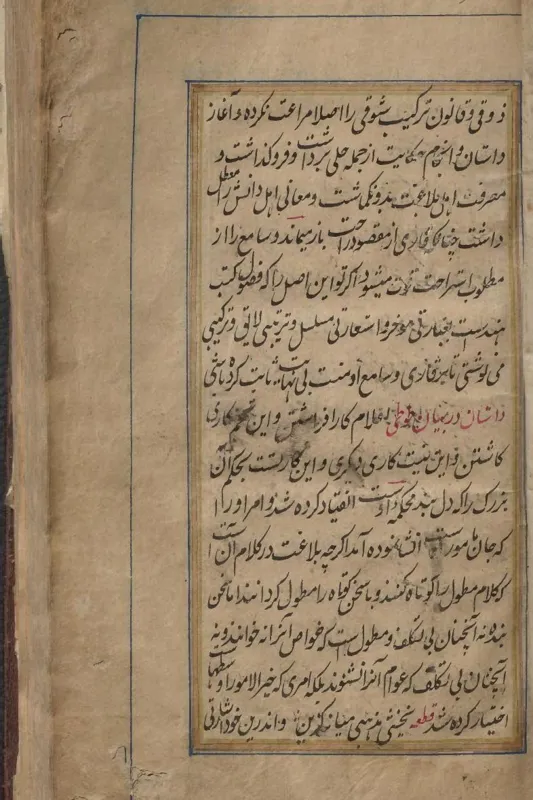 ذوقی و قانون ترکیب شوقی را اصلا مراعت نکرده و آغاز
داستان و انجام حکایت از جمله حلی برداشت و فروگذاشت و
معرفت اهل بلاغت بدو نگماشت و معانی اهل دانش را معطل
داشت چنانکه قاری از مقصود راحت بازمیماند و سامع را از
مطلوب استراحت فوت میشود اگر تو این اصل را که فضول کتب
هندست بعبارتی موخر و استعارتی مسلسل و ترتیبی لایق و ترکیبی
می نوشتی تا بر قاری و سامع او منت بی نهایت ثابت کرده باشی
داستان در بیان طوطی اقلام کار افراشتن و این تخم کاری
کاشتن و این نیت کاری دیگری و این کاریست بحکم آن
بزرگ را که دل بند محکمه اوست انقیاد کرده شد و امر او را
که جان مامورست انشا نموده آمد اگرچه بلاغت در کلام آنست
که کلام مطول را کوتاه کنند و یا سخن کوتاه را مطول گردانند اما سخن
بنده نه آنچنان بی تکلف و مطول است که خواص آنرا نه خوانند و نه
آنچنان بی تکلف که عوام آنرا نشنوند بلکه امری که خیر الامور اوسطها
اختیار کرده شد قطعه نخشبی مذهبی میانه گزین و اندرین خود